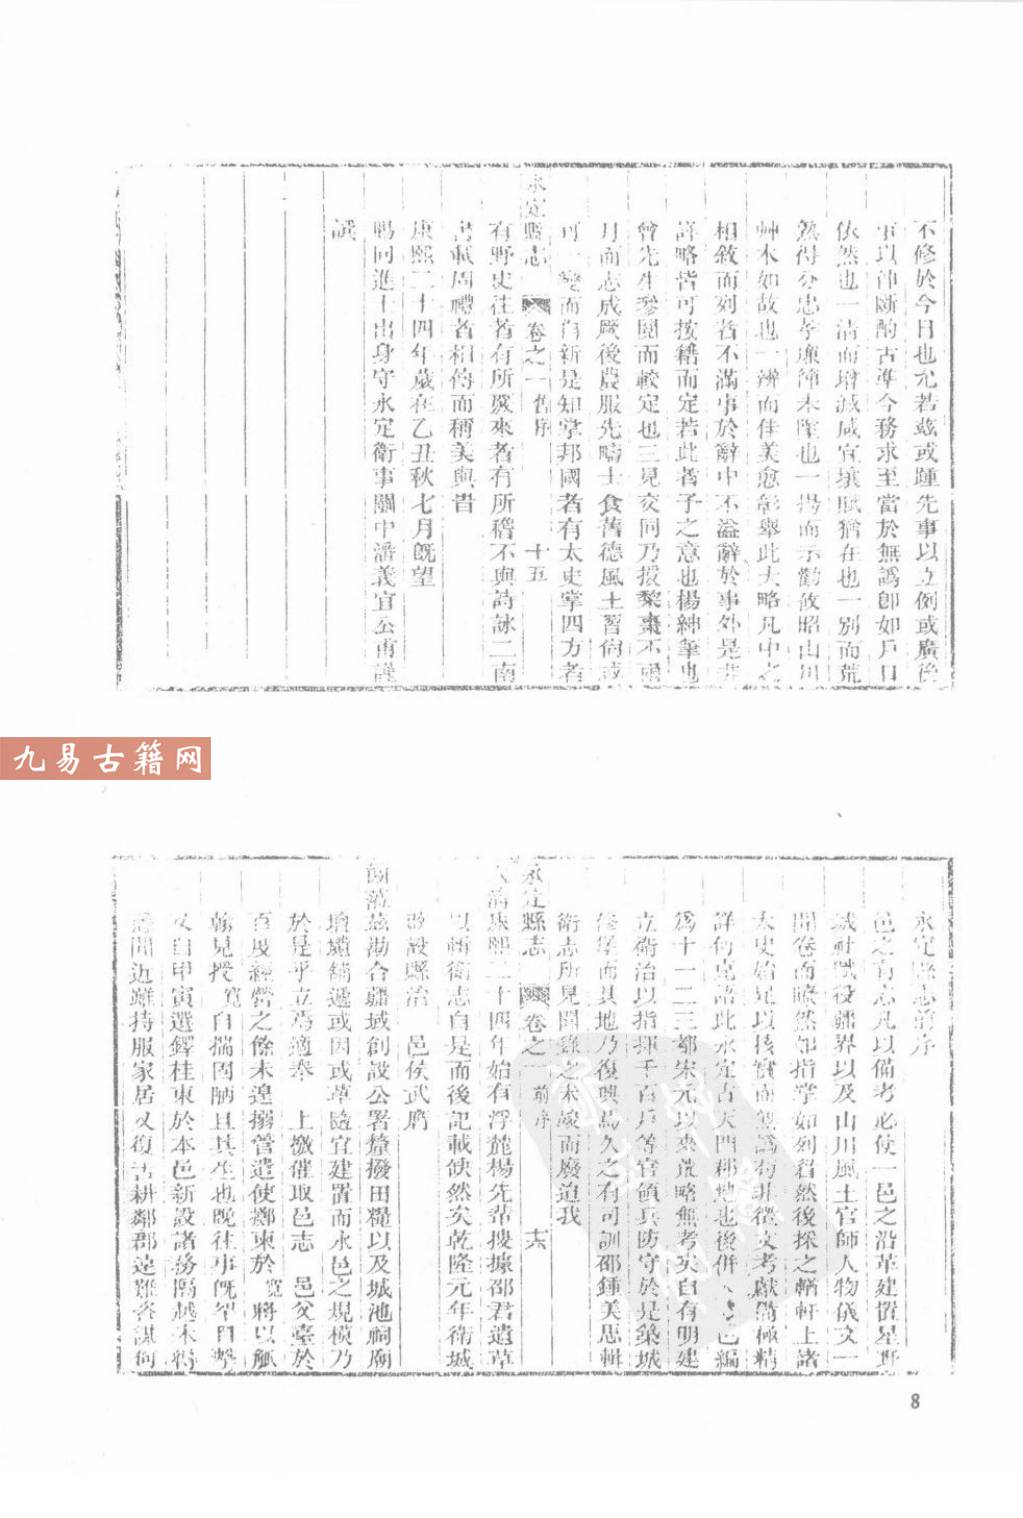 不修於今日也允若茲或踵先事以立例或廣徐
事以伸斷酌古準今務求至當於無譌卽如戶口
依然也一清而增減咸宜壤賦猶在也一別而荒
熟得分忠孝廉節未墜也一揚而示勸攸昭山川
艸木如故也一辨而佳美愈彰舉此大略凡中之
相敘而列者不滿事於辭中不溢辭於事外是非
詳略皆可按籍而定若此者子之意也楊紳筆也
曾先生參閱而較定也三見交同乃授棃棗不兩
月而志成厥後農服先疇士食舊德風土習尙或
可一變而自新是知掌邦國者有太史掌四方者
有野史往者有所歲來者有所稽不與詩詠二南
書載周禮者相傳而稱美與昔
康熙二十四年歲在乙丑秋七月旣望
賜同進士出身守永定衛事關中潘義宜公甫謹
譔
永定縣志 卷之一 舊序 十五
九易古籍网
永定縣志前序
邑之有志凡以備考必使一邑之沿革建置星野
城社職役疆界以及山川風土官師人物儀文一
開卷而瞭然如指掌如列眉然後採之輶軒上諸
太史始足以核實而無譌苟非徵文考獻備極精
詳何克語此永定古天門郡地也後併入 邑編
為十一二三都宋元以來荒略無考矣自有明建
立衛治以指揮千百戶等官領兵防守於是築城
修學而其地乃復興焉久之有司訓邵鍾美思輯
衛志所見聞錄之未竣而廢迨我
永定縣志 卷之一 前序 十六
大淸康熙二十四年始有浮麓楊先輩搜據邵君遺草
以輯衛志自是而後記載缺然矣乾隆元年衛城
改設縣治 邑侯武
簡蒞茲勘合疆域創設公署釐撥田糧以及城池祠廟
壇壝鋪遞或因或革隨宜建置而永邑之規模乃
於是乎立焉適奉 上檄催取邑志 邑父臺於
百度經營之餘未遑搦管遣使擲柬於 寬將以觚
翰見授 寬自揣固陋且其生也晚往事旣罕目擊
又自甲寅選鐸桂東於本邑新設諸務隔越未得
悉聞近難持服家居又復舌耕鄰郡遠難咨謀何
8